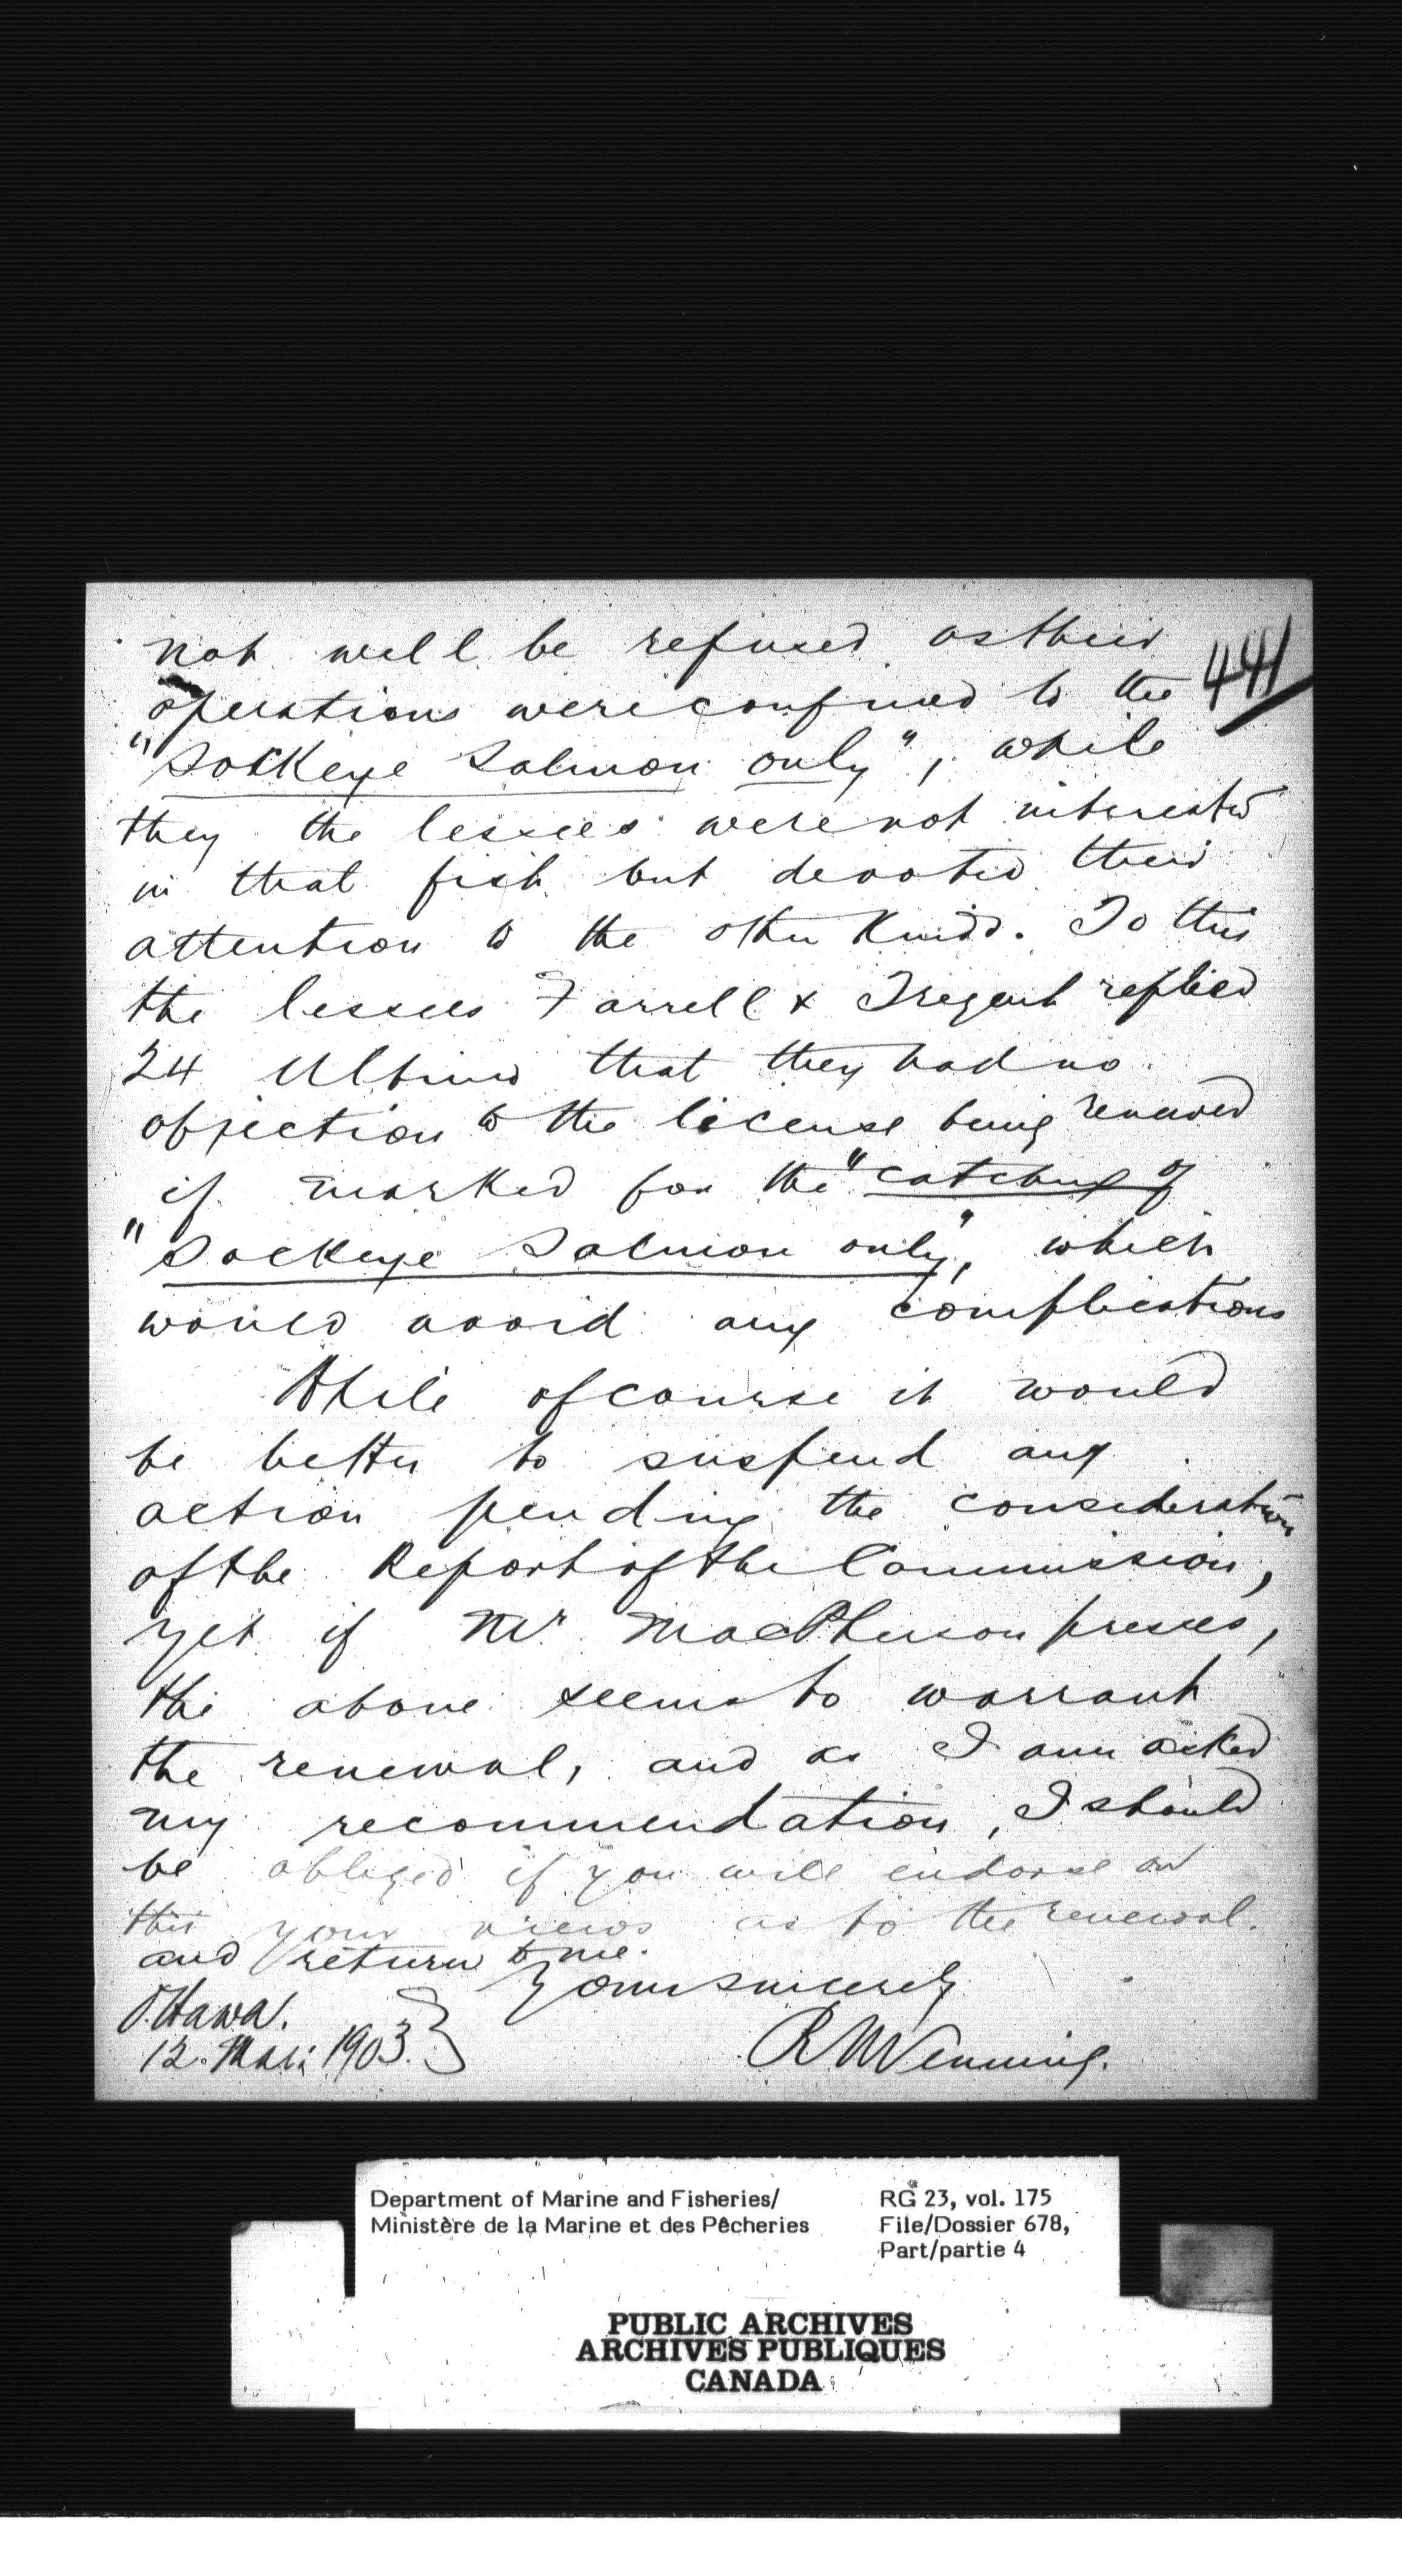 441
not well be refused as their
operations were confined to the
"Sockeye Salmon only", while
they the lessees were not interested
in that fish but devoted their
attention to the other kinds. To this
the lessees Farrell & Tregent replied
24 Ultimo that they had no
objection to the license being renewed
if marked for the "catching of
"Sockeye Salmon only", which
would avoid any complications
While of course it would
be better to suspend any
action pending the consideration
of the Report of the Commission,
yet if Mr MacPherson presses,
the above seems to warrant
the renewal, and as I am asked
my recommendation, I should
be obliged if you will endorse on
this your views as to the renewal.
and return to me.
Yours sincerely
Ottawa.
12. Mar: 1903. }
R N Venning.
Department of Marine and Fisheries/
Ministère de la Marine et des Pêcheries
RG 23, vol. 175
File/Dossier 678,
Part/partie 4
PUBLIC ARCHIVES
ARCHIVES PUBLIQUES
CANADA